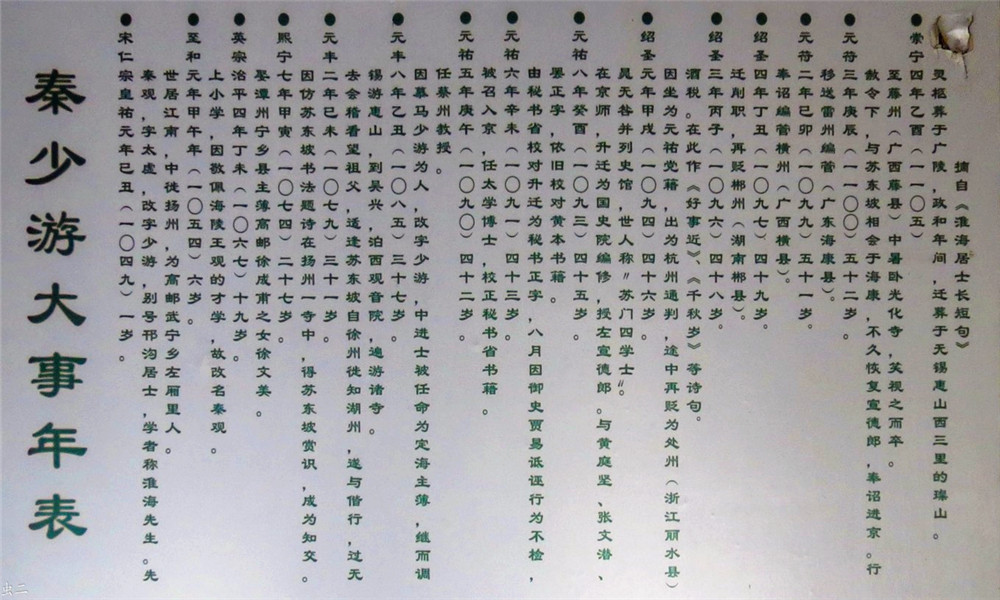 秦少游大事年表
●宋仁宗皇祐元年己丑（一〇四九）一岁。
秦观，字太虚，改字少游，别号邗沟居士，学者称淮海先生。先
世居江南，中徙扬州，为高邮武宁乡左厢里人。
●至和元年甲午年（一〇五四）六岁。
上小学，因敬佩海陵王观的才学，故改名秦观。
●英宗治平四年丁未（一〇六七）十九岁。
娶潭州宁乡县主薄高邮徐成甫之女徐文美。
●熙宁七年甲寅（一〇七四）二十七岁。
因仿苏东坡书法题诗在扬州一寺中，得苏东坡赏识，成为知交。
●元丰二年己未（一〇七九）三十一岁。
去会稽看望祖父，适逢苏东坡自徐州徙知湖州，遂与偕行，过无
锡游惠山，到吴兴，泊西观音院，遍游诸寺。
●元丰八年乙丑（一〇八五）三十七岁。
因慕马少游为人，改字少游，中进士被任命为定海主薄，继而调
任蔡州教授。
●元祐五年庚午（一〇九〇）四十二岁。
被召入京，任太学博士，校正秘书省书籍。
●元祐六年辛未（一〇九一）四十三岁。
由秘书省校对升迁为秘书正字，八月因御史贾易诋诬行为不检，
罢正字，依旧校对黄本书籍。
●元祐八年癸酉（一〇九三）四十五岁。
在京师，升迁为国史院编修，授左宣德郎。与黄庭坚、张文潜、
晁无咎并列史馆，世人称"苏门四学士"。
●绍圣元年甲戌（一〇九四）四十六岁。
因坐为元祐党籍，出为杭州通判，途中再贬为处州（浙江丽水县）
酒税。在此作《好事近》、《千秋岁》等诗句。
●绍圣三年丙子（一〇九六）四十八岁。
迁削职，再贬郴州（湖南郴县）。
●绍圣四年丁丑（一〇九七）四十九岁。
奉诏编管横州（广西横县）。
●元符二年己卯（一〇九九）五十一岁。
移送雷州编管（广东海康县）。
●元符三年庚辰（一一〇〇）五十二岁。
赦令下，与苏东坡相会于海康，不久恢复宣德郎，奉诏进京。行
至藤州（广西藤县）中暑卧光化寺，笑视之而卒。
●崇宁四年乙酉（一一〇五）
灵柩葬于广陵，政和年间，迁葬于无锡惠山西三里的璨山。
摘自《淮海居士长短句》
虫二